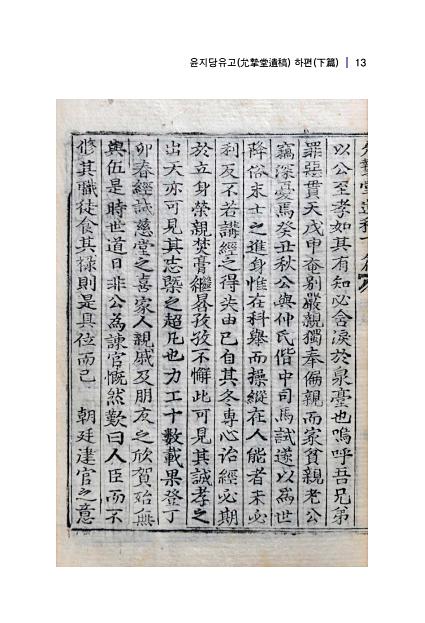 윤지당유고(允摯堂遺稿) 하편(下篇) | 13
以公至孝如其有知必含淚於泉臺也嗚呼吾兄弟
罪惡貫天戊申奄別嚴親獨奉偏親而家貧親老公
竊深憂焉癸丑秋公與仲氏偕中司馬試遂以爲世
降俗末士之進身惟在科舉而操縱在人能者未必
利反不若講經之得失由己自其冬專心治經必期
於立身榮親焚膏繼晷孜孜不懈此可見其誠孝之
出天亦可見其志槩之超凡也力工十數載果登丁
卯春經試慈堂之喜家人親戚及朋友之欣賀殆無
與伍是時世道日非公為諫官慨然歎曰人臣而不
修其職徒食其祿則是具位而已 朝廷建官之意